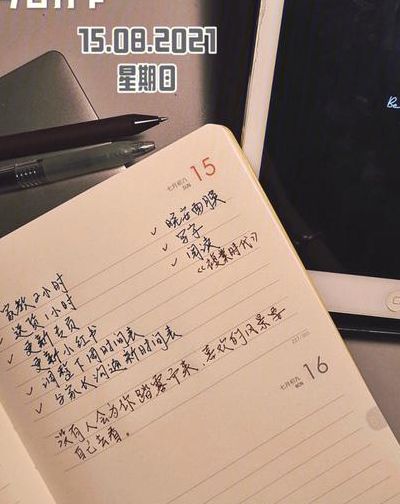 15.08.2021
星期日
七月初八 15
SUN
✓ 晚安面膜
✓ 写字
✓ 阅读
家教2小时
✓ 送货1小时
✓ 更新专页
✓ 更新小红书
✓ 调整下周时间表
✓ 与家长沟通新时间表
没有人会为你踏雾而来，喜欢的风景要
自己去看。
七月初九 16